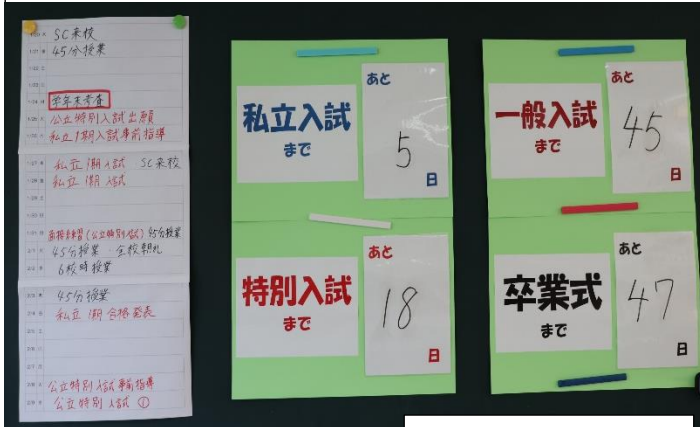 SC来校
45分授業
学年末考査
公立特別入試出願
私立1期入試事前指導
私立1期入試 SC来校
私立1期入試
面接練習(公立特別入試) 45分授業
45分授業 全校朝礼
6校時授業
45分授業
私立1期合格発表
公立特別入試事前指導
公立特別入試①
私立入試
まで
あと
5
日
特別入試
まで
あと
18
日
一般入試
まで
あと
45
日
卒業式
まで
あと
47
日